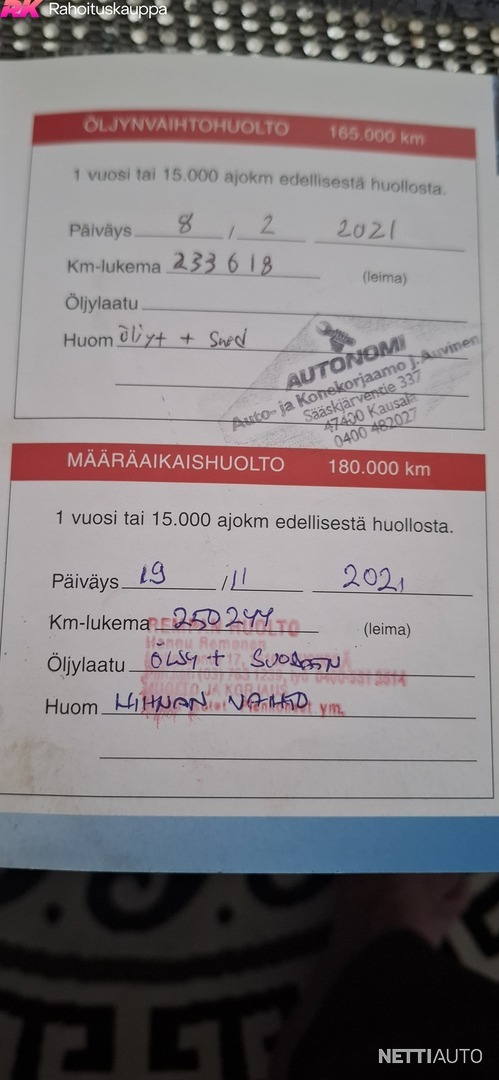 RK Rahoituskauppa
ÖLJYNVAIHTOHUOLTO 165.000 km
1 vuosi tai 15.000 ajokm edellisestä huollosta.
Päiväys 8 / 2 2021
Km-lukema 233618
(leima)
Öljylaatu
Huom Öljyt + Suod
AUTONOMI
Auto- ja Konekorjaamo J. Auvinen
Sääskjärventie 337
47400 Kausala
0400 482027
MÄÄRÄAIKAISHUOLTO 180.000 km
1 vuosi tai 15.000 ajokm edellisestä huollosta.
Päiväys 19 / 11 2021
Km-lukema 250244
(leima)
HUOLTO
Hannu
Öljylaatu ÖLJY + SUODATIN
Huom HIHNAN VAIHTO
ym.
NETTIAUTO